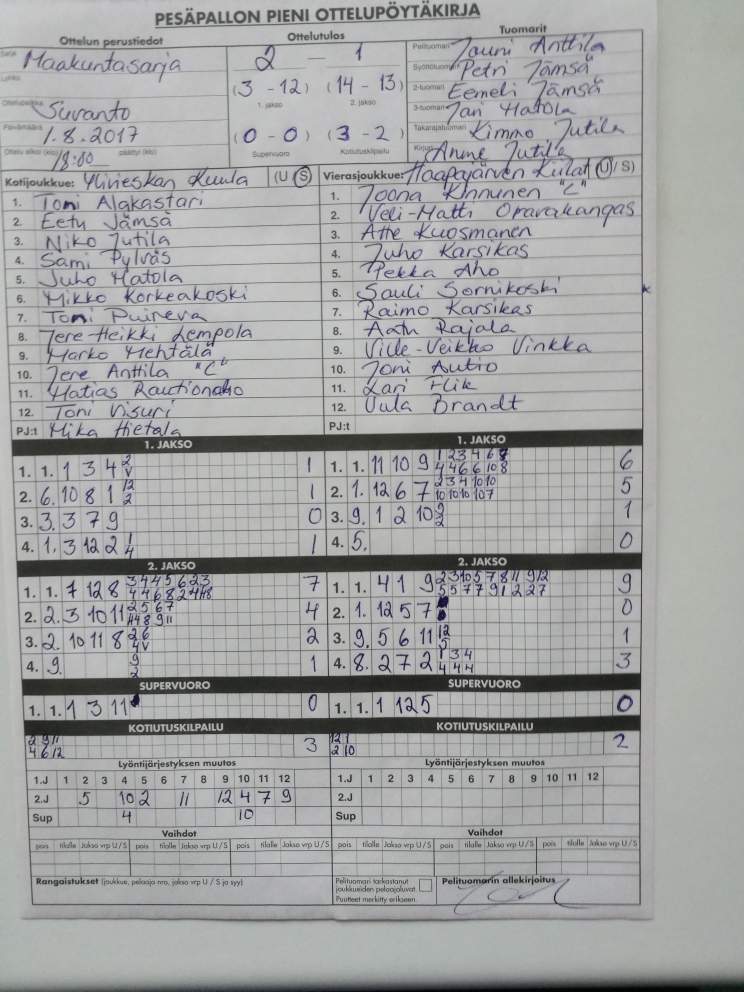 PESÄPALLON PIENI OTTELUPÖYTÄKIRJA
Ottelun perustiedot
Maakuntasarja
Suvanto
1.8.2017
18:00
Ottelutulos
2 – 1
(3 - 12) (14 - 13)
1. jakso 2. jakso
(0 - 0) (3 - 2)
Supervuoro Kotiutuskilpailu
Tuomarit
Pelituomari Jouni Anttila
Syöttötuomari Petri Jämsä
2-tuomari Eemeli Jämsä
3-tuomari Jari Matola
Takarajatuomari Kimmo Jutila
Kirjuri Anne Jutila
Kotijoukkue: Ylivieskan Kuula (U/S)
1. Toni Alakastari
2. Eetu Jämsä
3. Niko Jutila
4. Sami Pylväs
5. Juho Matola
6. Mikko Korkeakoski
7. Toni Puireva
8. Jere-Heikki Lempola
9. Marko Mehtälä
10. Jere Anttila "C"
11. Matias Rautionaho
12. Toni Visuri
PJ:t Mika Hietala
Vierasjoukkue: Haapajärven Kiilat (U/S)
1. Joona Kinnunen "C"
2. Veli-Matti Oravakangas
3. Atte Kuosmanen
4. Juho Karsikas
5. Pekka Aho
6. Sauli Sornikoski
7. Raimo Karsikas
8. Aatu Rajala
9. Ville-Veikko Vinkka
10. Joni Autio
11. Lari Flik
12. Uula Brandt
PJ:t
1. JAKSO
1. 1. 1 3 4 2 V 1
2. 6. 10 8 1 12 2 1
3. 3. 3 7 9 0
4. 1. 3 12 2 1 4 1
2. JAKSO
1. 1. 7 12 8 3 4 4 5 6 2 3 7
2. 2. 3 10 11 2 5 6 7 4
3. 2. 10 11 8 2 6 4 V 2
4. 9. 9 2 1
SUPERVUORO
1. 1. 1 3 11 0
KOTIUTUSKILPAILU
2 9 11
4 6 12 3
1. JAKSO
1. 1. 11 10 9 1 2 3 4 6 8
4 4 6 6 10 8 6
2. 1. 12 6 7 2 3 4 10 10
10 10 10 10 7 5
3. 9. 1 2 10 9 2 1
4. 5. 0
2. JAKSO
1. 1. 4 1 9 2 3 10 5 7 8 11 9 12
5 5 7 7 9 1 2 2 7 9
2. 1. 12 5 7 0
3. 9. 5 6 11 12 5 1
4. 8. 2 7 2 1 3 4
4 4 4 3
SUPERVUORO
1. 1. 1 12 5 0
KOTIUTUSKILPAILU
12 1
2 10 2
Lyöntijärjestyksen muutos
1.J 1 2 3 4 5 6 7 8 9 10 11 12
2.J 5 10 2 11 12 4 7 9
Sup 4 10
Vaihdot
pois tilalle Jakso vrp U/S pois tilalle Jakso vrp U/S pois tilalle Jakso vrp U/S
Rangaistukset (joukkue, pelaaja nro, jakso vrp U / S ja syy)
Lyöntijärjestyksen muutos
1.J 1 2 3 4 5 6 7 8 9 10 11 12
2.J
Sup
Vaihdot
pois tilalle Jakso vrp U/S pois tilalle Jakso vrp U/S pois tilalle Jakso vrp U/S
Pelituomari tarkastanut
joukkueiden pelaajaluvat.
Puutteet merkitty erikseen.
Pelituomarin allekirjoitus